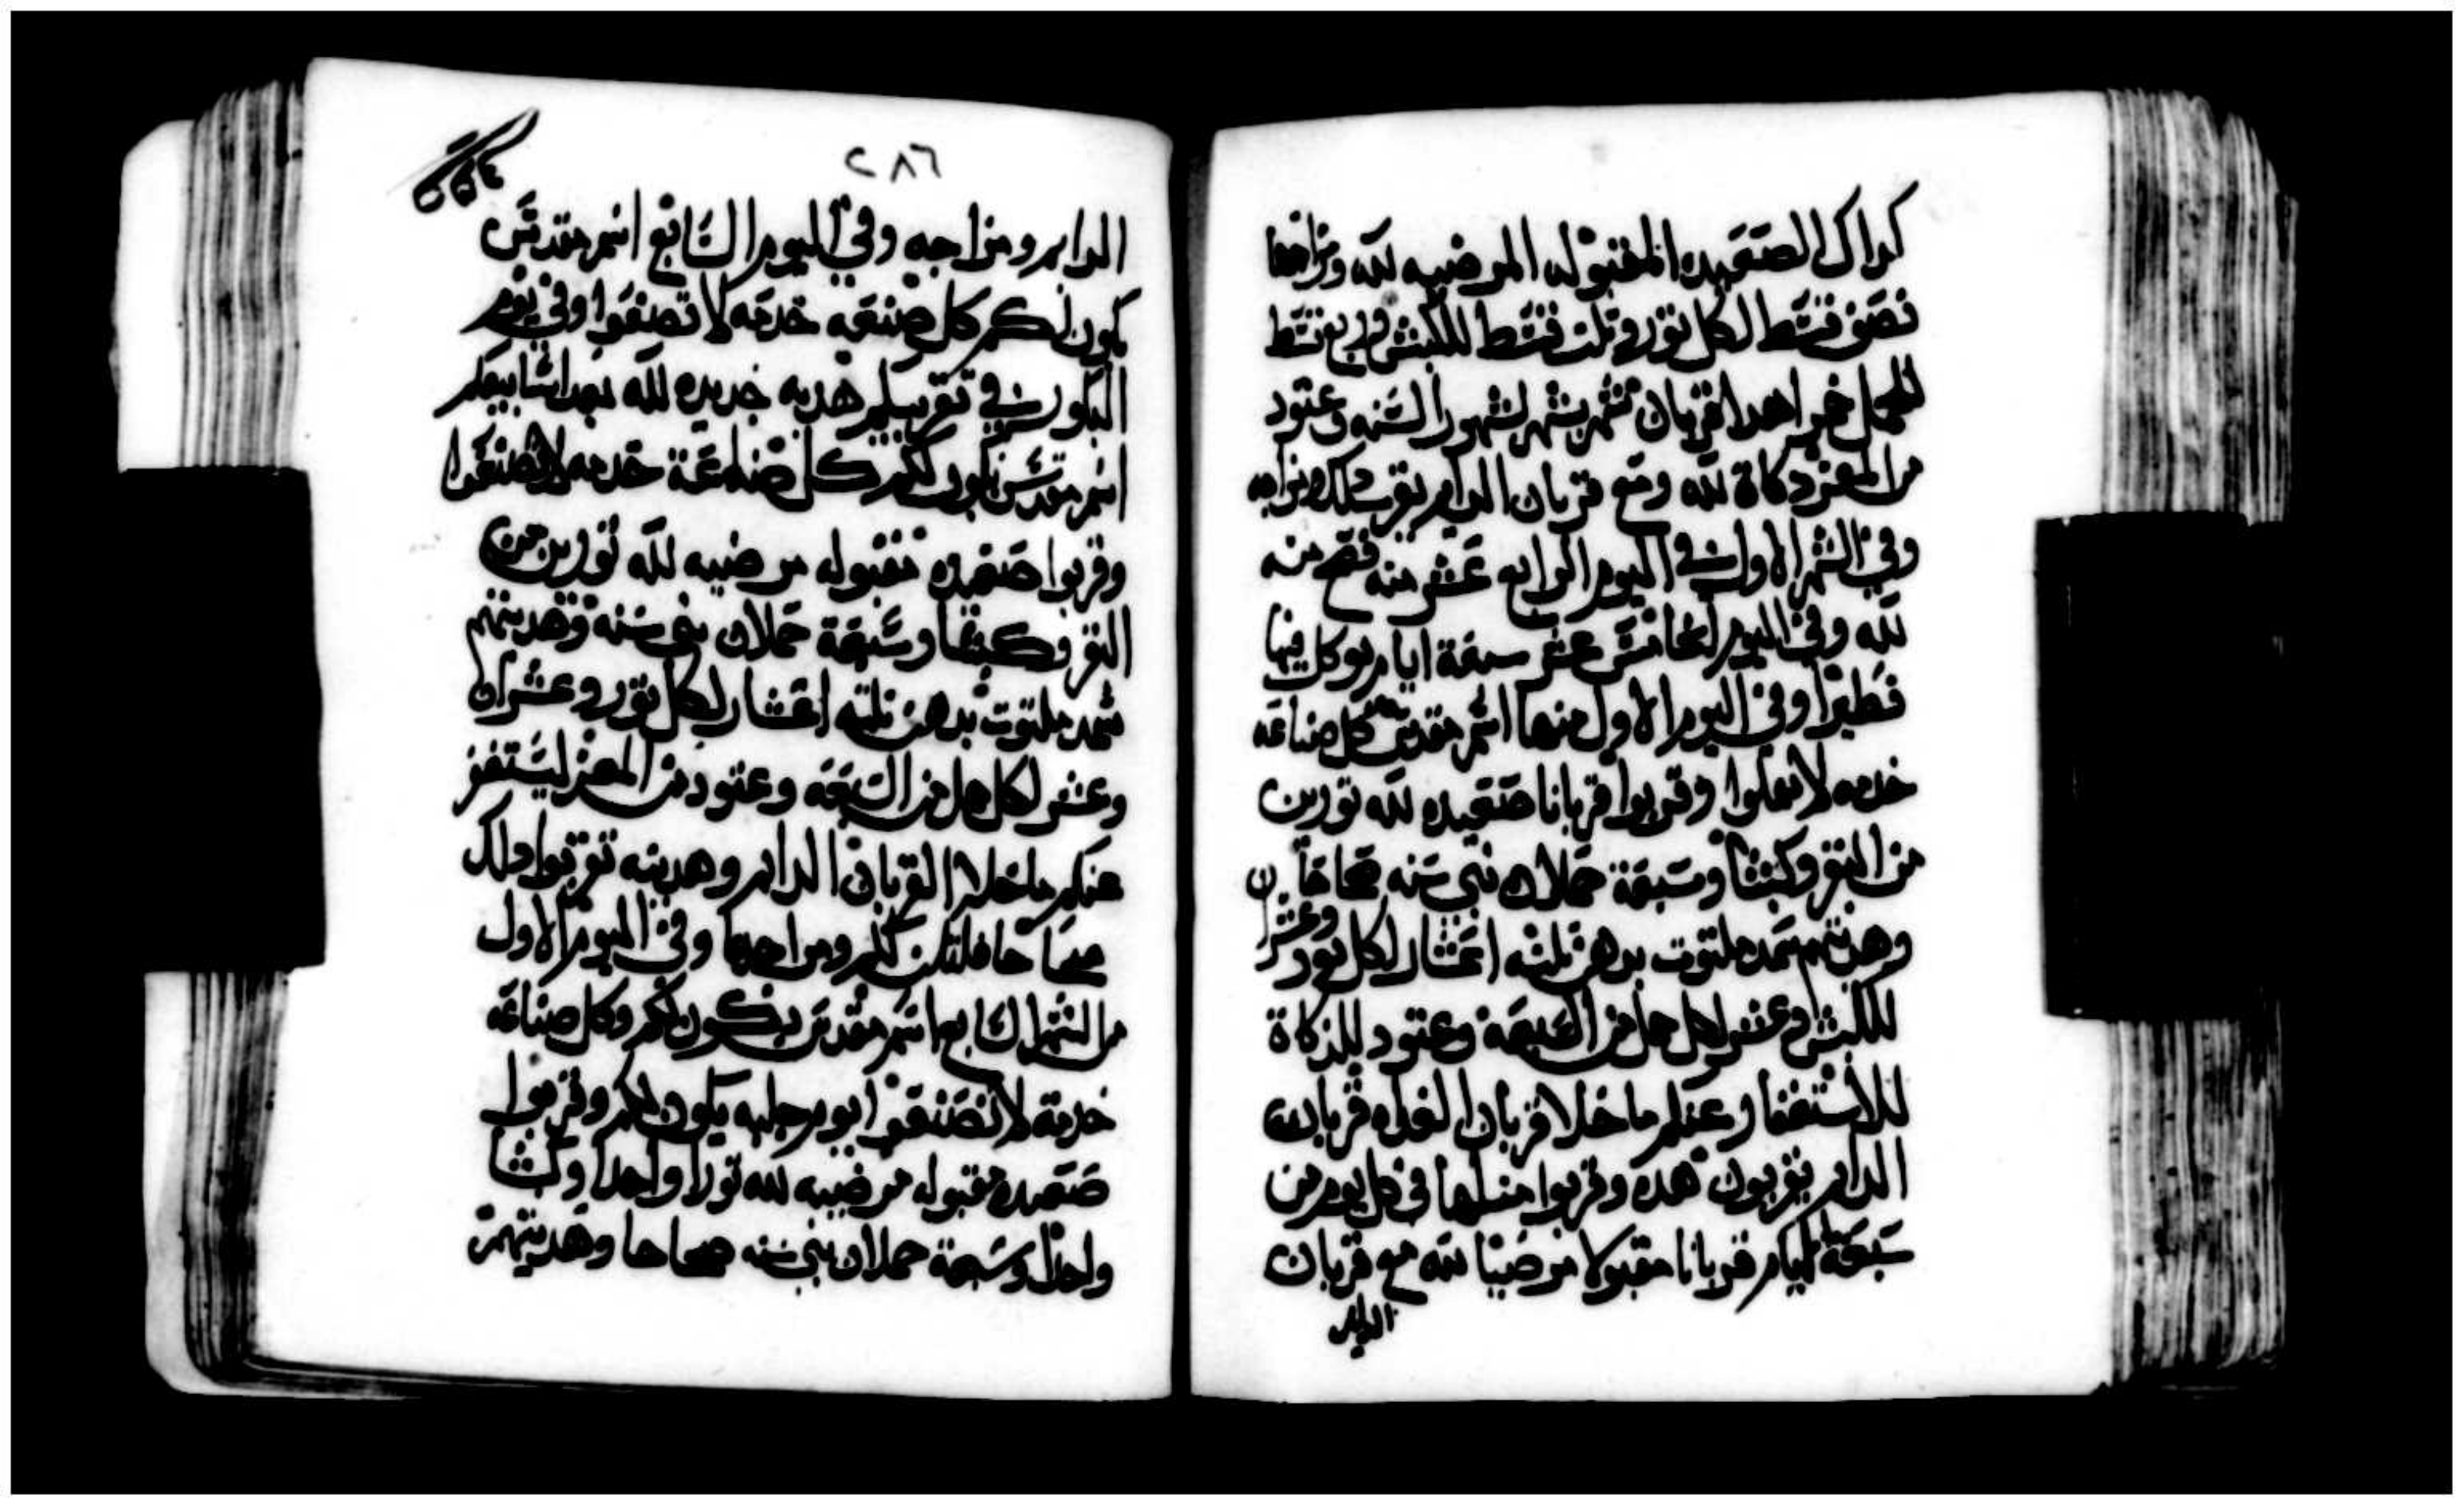 كداك الصعيده المقبوله المرضيه لله ومزاجها
نصف قسط لكل تور وتلت قسط للكبش وربع قسط
للحمل خمر اهدا قربان شهر بشهر لشهور السنه وعتود
من المعز دكاة لله ومع قربان الدايم يقرب دلك ومزاجه
وفي الشهر الاول في اليوم الرابع عشر منه فصح منه
لله وفي اليوم الخامس عشر سبعة ايام يوكل فيها
فطيرا وفي اليوم الاول منها اسم مقدس كل صناعه
خدمه لا تعملوا وقربوا قربانا صعيده لله تورين
من البقر وكبشا وسبعة حملان بني سنه صحاحا
وهديتهم سمد ملتوت بدهن ثلثه اعشار لكل تور وعشران
للكبش وعشر لكل حمل من السبعه وعتود للذكاة
للاستغفار عنكم ما خلا قربان الغداه قربان
الدايم يقربون هده وقربوا مثلها في كل يوم من
سبعة ايام قربانا مقبولا مرضيا لله مع قربان
الدايم
٢٨٦
الدايم ومزاجه وفي اليوم السابع اسم مقدس
يكون لكم كل صنعه خدمه لا تصنعوا وفي يوم
البكور في تقريبكم هديه جديده لله بعد اسابيعكم
اسم مقدس يكون لكم كل صناعة خدمه لا تصنعوا
وقربوا صعيده مقبوله مرضيه لله تورين من
البقر وكبشا وسبعة حملان بني سنه وهديتهم
سمد ملتوت بدهن ثلثه اعشار لكل تور وعشران
وعشر لكل حمل من السبعه وعتود من المعز ليستغفر
عنكم ما خلا القربان الدايم وهديته تقربوا دلك
صحاحا فلتكن لكم ومزاجها وفي اليوم الاول
من الشهر السابع اسم مقدس يكون لكم وكل صناعه
خدمة لا تصنعوا يوم جلبه يكون لكم وقربوا
صعيده مقبوله مرضيه لله تورا واحدا وكبشا
واحدا وسبعة حملان بني سنه صحاحا وهديتهم